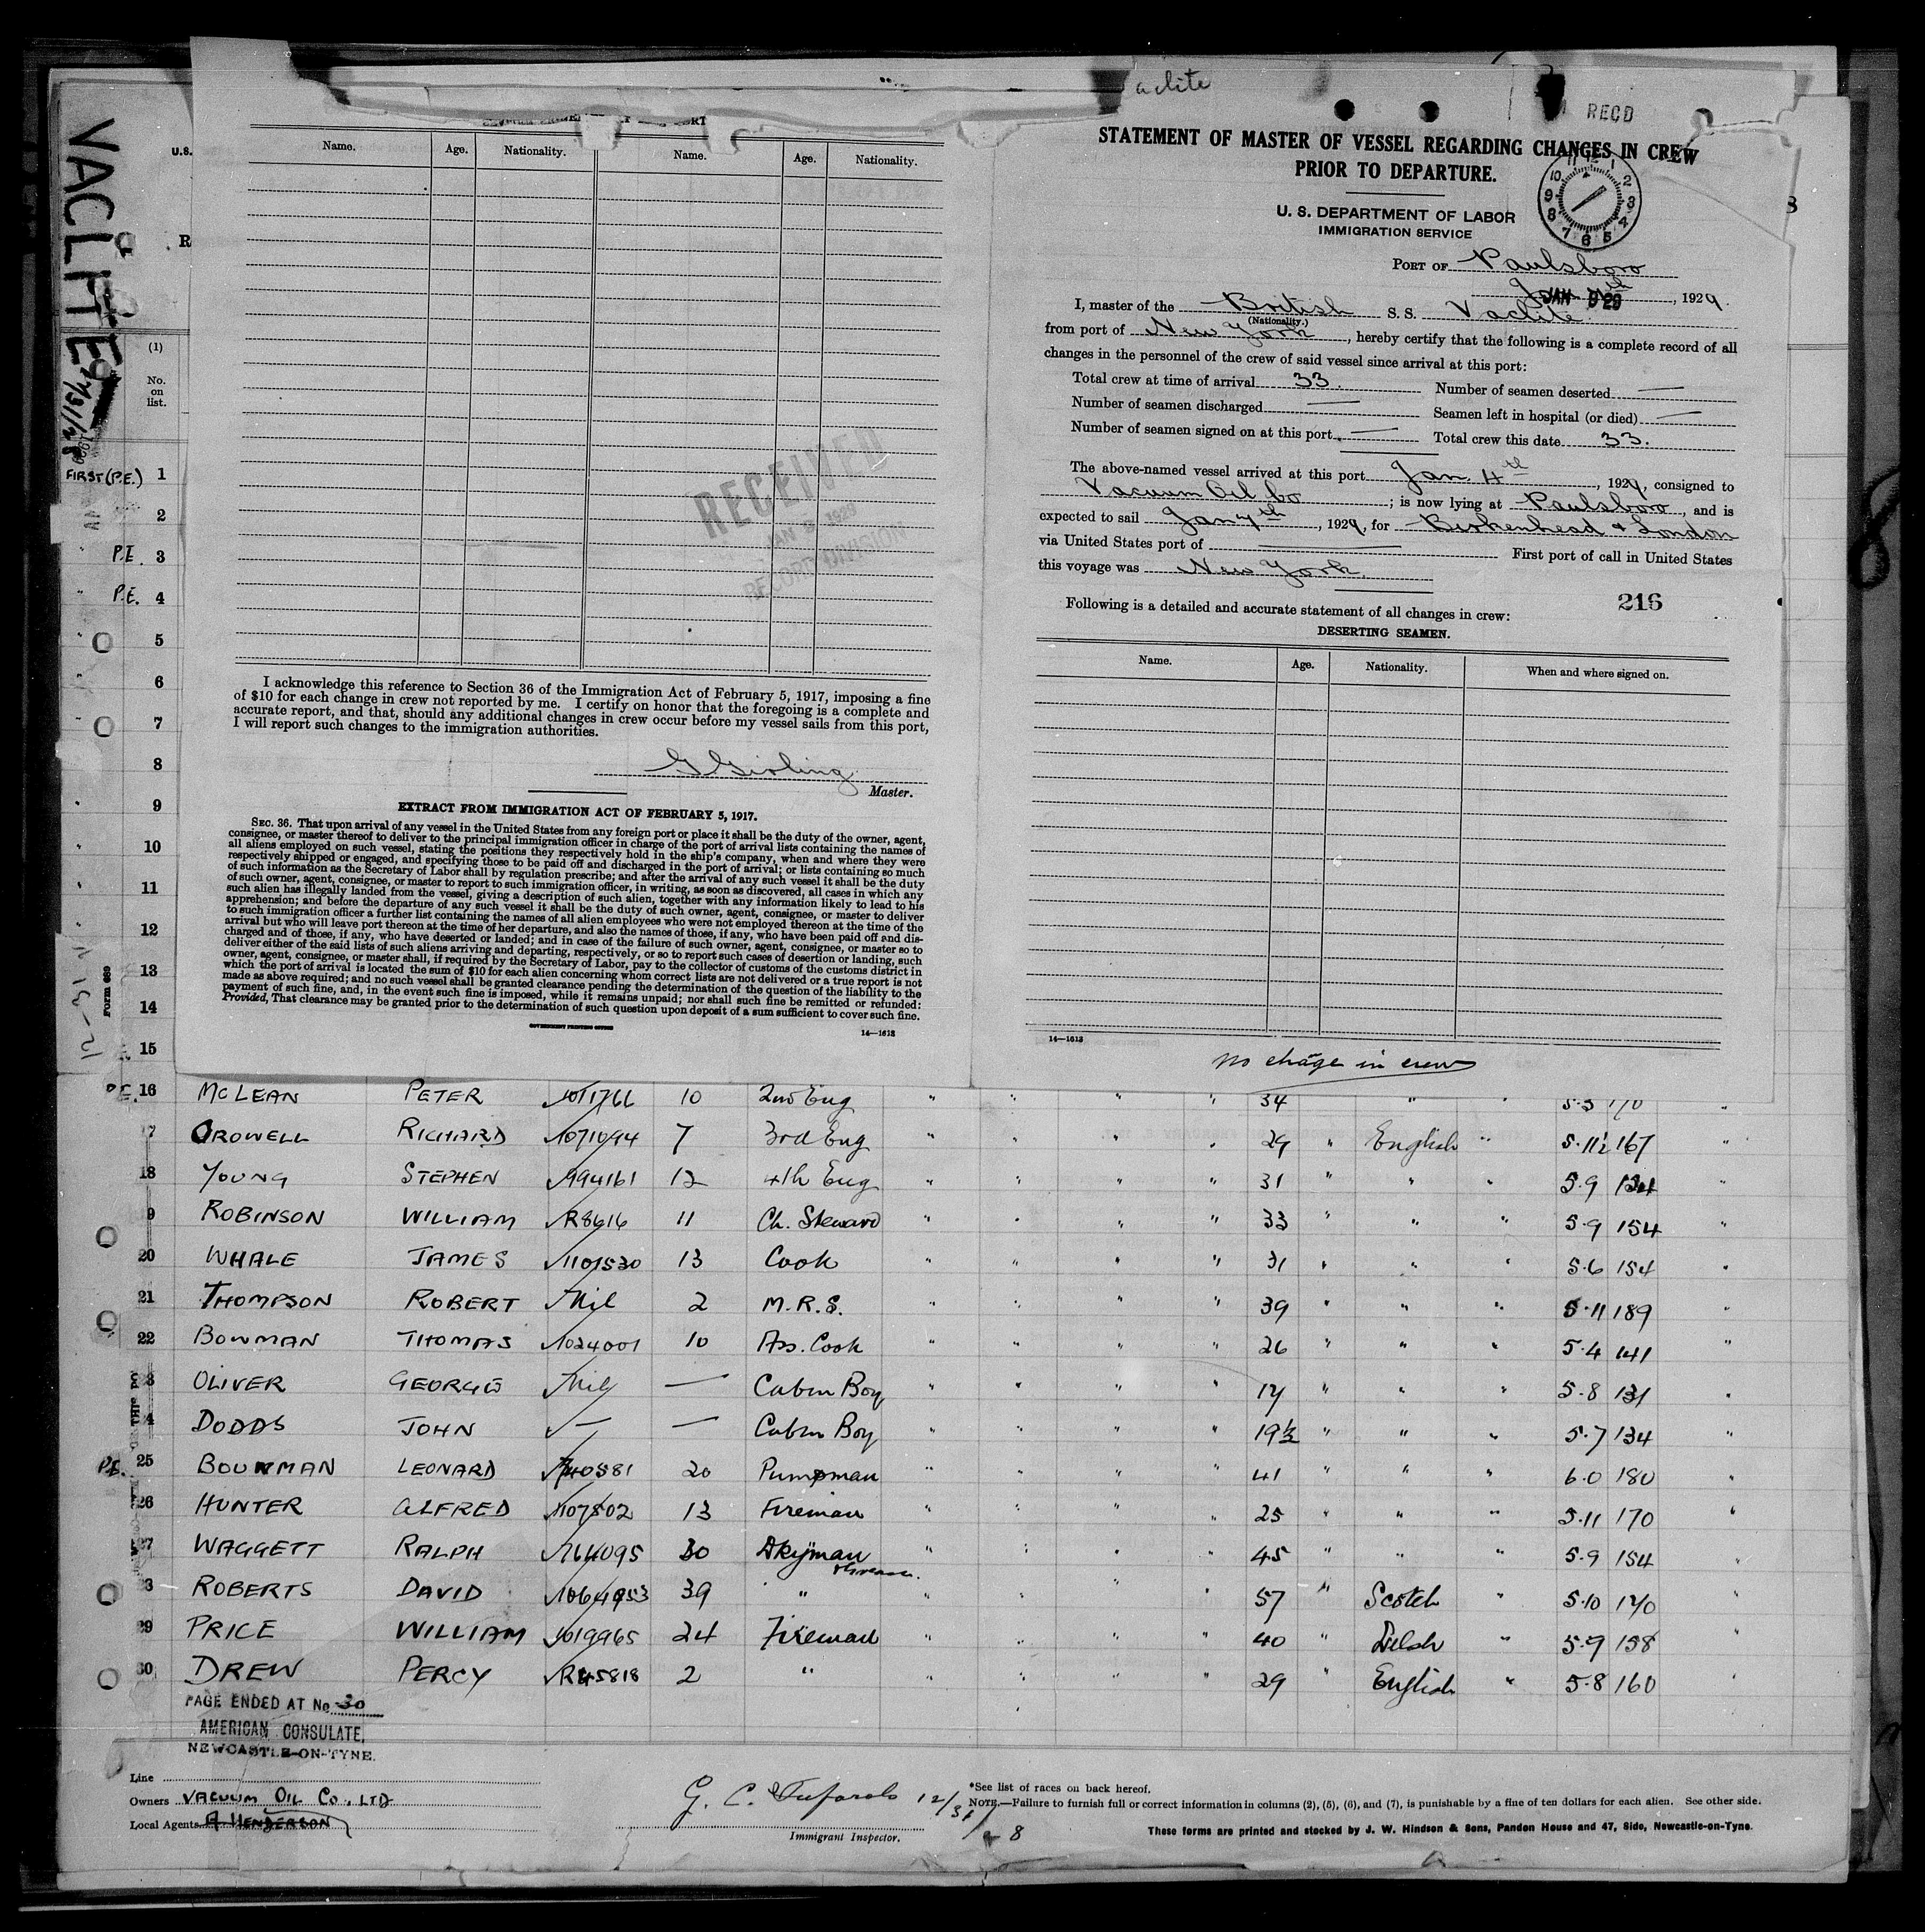 aclite
RECD
VACLITE
12/31/28
U.S.
R
(1)
No.
on
list.
FIRST (P.E.) 1
2
P.E. 3
P.E. 4
5
6
7
8
9
10
11
12
13
14
15
Form 689
12-31-
Name. Age. Nationality. Name. Age. Nationality.
RECEIVED
JAN 1929
RECORD DIVISION
I acknowledge this reference to Section 36 of the Immigration Act of February 5, 1917, imposing a fine
of $10 for each change in crew not reported by me. I certify on honor that the foregoing is a complete and
accurate report, and that, should any additional changes in crew occur before my vessel sails from this port,
I will report such changes to the immigration authorities.
G Girling
Master.
EXTRACT FROM IMMIGRATION ACT OF FEBRUARY 5, 1917.
SEC. 36. That upon arrival of any vessel in the United States from any foreign port or place it shall be the duty of the owner, agent,
consignee, or master thereof to deliver to the principal immigration officer in charge of the port of arrival lists containing the names of
all aliens employed on such vessel, stating the positions they respectively hold in the ship's company, when and where they were
respectively shipped or engaged, and specifying those to be paid off and discharged in the port of arrival; or lists containing so much
of such information as the Secretary of Labor shall by regulation prescribe; and after the arrival of any such vessel it shall be the duty
of such owner, agent, consignee, or master to report to such immigration officer, in writing, as soon as discovered, all cases in which any
such alien has illegally landed from the vessel, giving a description of such alien, together with any information likely to lead to his
apprehension; and before the departure of any such vessel it shall be the duty of such owner, agent, consignee, or master to deliver
to such immigration officer a further list containing the names of all alien employees who were not employed thereon at the time of the
arrival but who will leave port thereon at the time of her departure, and also the names of those, if any, who have been paid off and dis-
charged and of those, if any, who have deserted or landed; and in case of the failure of such owner, agent, consignee, or master so to
deliver either of the said lists of such aliens arriving and departing, respectively, or so to report such cases of desertion or landing, such
owner, agent, consignee, or master shall, if required by the Secretary of Labor, pay to the collector of customs of the customs district in
which the port of arrival is located the sum of $10 for each alien concerning whom correct lists are not delivered or a true report is not
made as above required; and no such vessel shall be granted clearance pending the determination of the question of the liability to the
payment of such fine, and, in the event such fine is imposed, while it remains unpaid; nor shall such fine be remitted or refunded:
Provided, That clearance may be granted prior to the determination of such question upon deposit of a sum sufficient to cover such fine.
GOVERNMENT PRINTING OFFICE
14—1613
STATEMENT OF MASTER OF VESSEL REGARDING CHANGES IN CREW
PRIOR TO DEPARTURE.
U. S. DEPARTMENT OF LABOR
IMMIGRATION SERVICE
PORT OF Paulsboro
JAN 9 29, 1929.
I, master of the British S. S. Vaclite
(Nationality.)
from port of New York, hereby certify that the following is a complete record of all
changes in the personnel of the crew of said vessel since arrival at this port:
Total crew at time of arrival 33. Number of seamen deserted —
Number of seamen discharged — Seamen left in hospital (or died) —
Number of seamen signed on at this port — Total crew this date 33.
The above-named vessel arrived at this port Jan 4th, 1929, consigned to
Vacuum Oil Co; is now lying at Paulsboro, and is
expected to sail Jan 7th, 1929, for Birkenhead & London
via United States port of — First port of call in United States
this voyage was New York.
216
Following is a detailed and accurate statement of all changes in crew:
DESERTING SEAMEN.
Name. Age. Nationality. When and where signed on.
14—1613
No change in crew
P.E. 16 McLEAN PETER 1011766 10 2nd Eng " " " " 34 " " 5.5 170 "
17 CROWELL RICHARD 1071094 7 3rd Eng " " " " 29 " English " 5.11½ 167 "
18 YOUNG STEPHEN 994161 12 4th Eng " " " " 31 " " " 5.9 134 "
9 ROBINSON WILLIAM R8616 11 Ch. Steward " " " " 33 " " " 5.9 154 "
20 WHALE JAMES 1101530 13 Cook " " " " 31 " " " 5.6 154 "
21 THOMPSON ROBERT Nil 2 M.R.S. " " " " 39 " " " 5.11 189 "
22 BOWMAN THOMAS 1024001 10 Ass. Cook " " " " 26 " " " 5.4 141 "
23 OLIVER GEORGE Nil — Cabin Boy " " " " 17 " " " 5.8 131 "
4 DODDS JOHN — — Cabin Boy " " " " 19½ " " " 5.7 134 "
P.E. 25 BOWMAN LEONARD 740581 20 Pumpman " " " " 41 " " " 6.0 180 "
26 HUNTER ALFRED 1107502 13 Fireman " " " " 25 " " " 5.11 170 "
27 WAGGETT RALPH 764095 30 Dkyman " " " " 45 " " " 5.9 154 "
ROBERTS DAVID 1064953 39 " " " " " 57 " Scotch " 5.10 170 "
29 PRICE WILLIAM 1019965 24 Fireman " " " " 40 " Welsh " 5.9 158 "
30 DREW PERCY R45818 2 " " " " " 29 " English " 5.8 160 "
PAGE ENDED AT No 30
AMERICAN CONSULATE,
NEWCASTLE-ON-TYNE.
Line
Owners VACUUM OIL CO. LTD
Local Agents A. HENDERSON
G. C. 12/31/28
Immigrant Inspector.
*See list of races on back hereof.
NOTE.—Failure to furnish full or correct information in columns (2), (5), (6), and (7), is punishable by a fine of ten dollars for each alien. See other side.
These forms are printed and stocked by J. W. Hindson & Sons, Pandon House and 47, Side, Newcastle-on-Tyne.